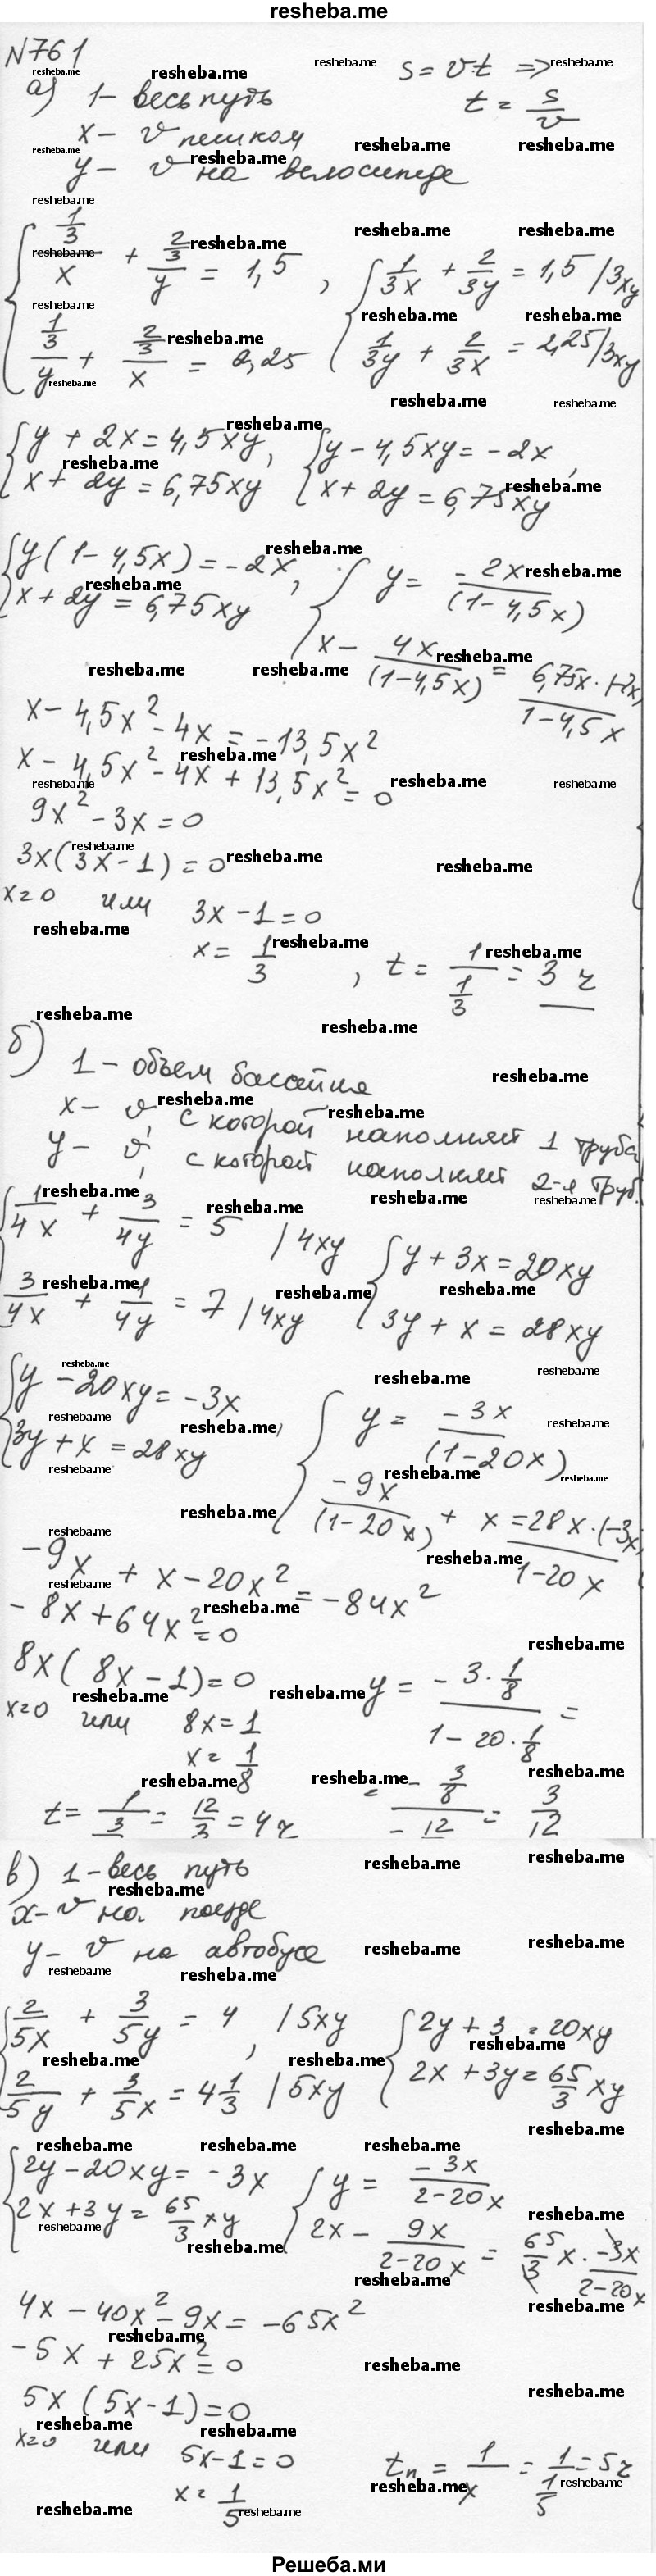 resheba.me
N761
а) 1 - весь путь
x - v пешком
y - v на велосипеде
s = v·t =>
t = s/v
{ (1/3)/x + (2/3)/y = 1,5 , { 1/3x + 2/3y = 1,5 /3xy
(1/3)/y + (2/3)/x = 2,25 1/3y + 2/3x = 2,25 /3xy
{ y + 2x = 4,5xy , { y - 4,5xy = -2x ,
x + 2y = 6,75xy x + 2y = 6,75xy
{ y(1 - 4,5x) = -2x , { y = -2x/(1-4,5x)
x + 2y = 6,75xy x - 4x/(1-4,5x) = 6,75x·(-2x)/1-4,5x
x - 4,5x² - 4x = -13,5x²
x - 4,5x² - 4x + 13,5x² = 0
9x² - 3x = 0
3x(3x-1) = 0
x=0 или 3x - 1 = 0
x = 1/3 , t = 1/(1/3) = 3 ч
б) 1 - объем бассейна
x - v, с которой наполняет 1 труба
y - v, с которой наполняет 2-я труб.
{ 1/4x + 3/4y = 5 /4xy { y + 3x = 20xy
3/4x + 1/4y = 7 /4xy 3y + x = 28xy
{ y - 20xy = -3x { y = -3x/(1-20x)
3y + x = 28xy , -9x/(1-20x) + x = 28x·(-3x)/1-20x
-9x + x - 20x² = -84x²
-8x + 64x² = 0
8x(8x-1) = 0 y = -3·1/8 / 1-20·1/8 =
x=0 или 8x = 1
x = 1/8
= - 3/8 / - 12 = 3/12
t = 1/3 = 12/3 = 4ч
в) 1 - весь путь
x - v на поезде
y - v на автобусе
{ 2/5x + 3/5y = 4 /5xy , { 2y + 3 = 20xy
2/5y + 3/5x = 4 1/3 /5xy 2x + 3y = 65/3 xy
{ 2y - 20xy = -3x { y = -3x/2-20x
2x + 3y = 65/3 xy 2x - 9x/2-20x = 65/3 x · -3x/2-20x
4x - 40x² - 9x = -65x²
-5x + 25x² = 0
5x(5x-1) = 0
x=0 или 5x-1 = 0
x = 1/5
tп = 1/x = 1/(1/5) = 5ч
Решеба.ми